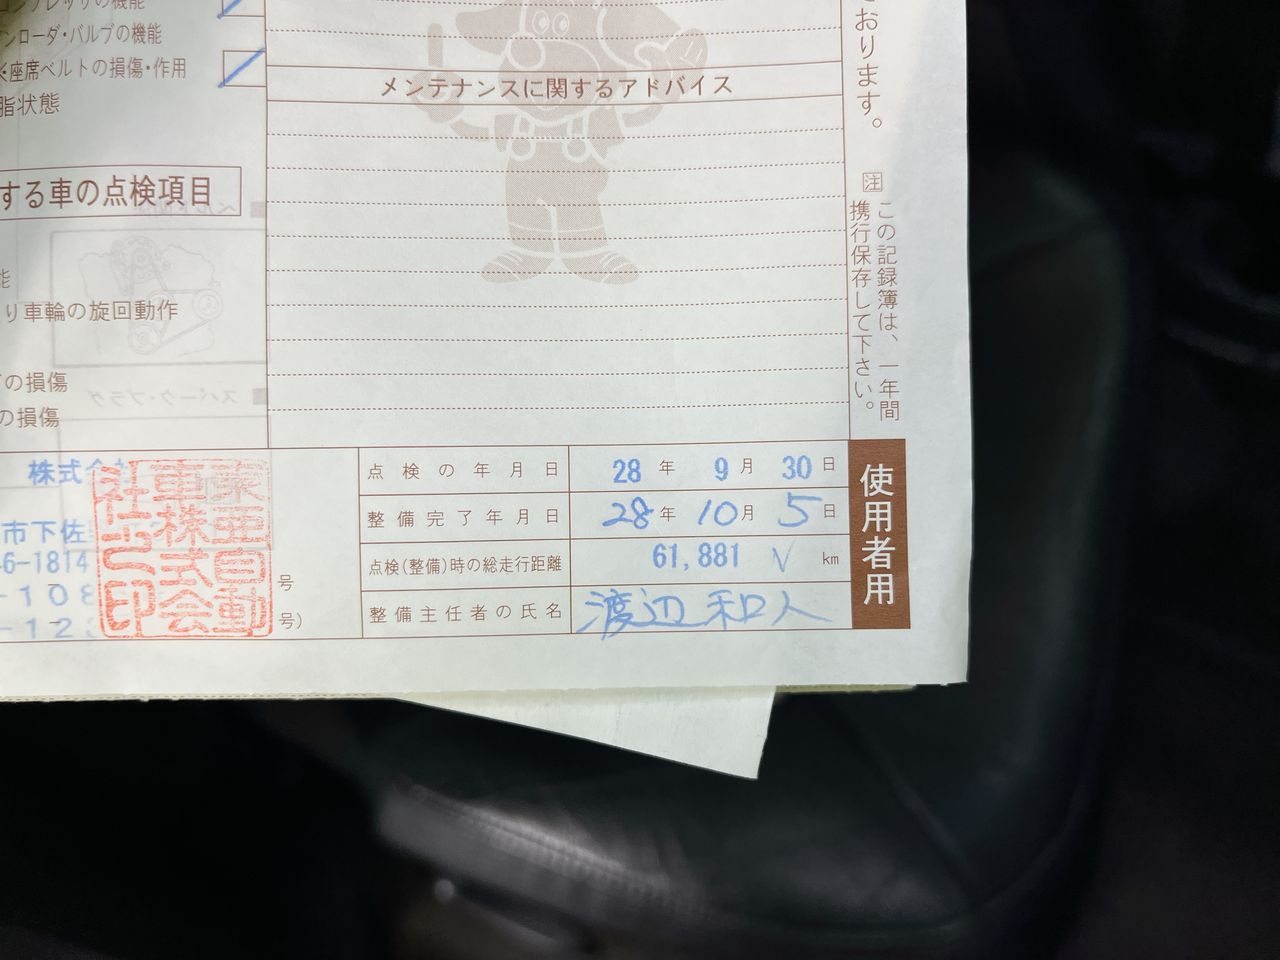 コンプレッサの機能
ンローダ・バルブの機能
※座席ベルトの損傷・作用
脂状態
する車の点検項目
能
り車輪の旋回動作
の損傷
の損傷
メンテナンスに関するアドバイス
おります。
注 この記録簿は、一年間
携行保存して下さい。
株式会
市下佐
46-1814
-108 号
-123 号)
東亜自動
車株式会
社之印
点検の年月日 28年 9月 30日
整備完了年月日 28年 10月 5日
点検(整備)時の総走行距離 61,881 km
整備主任者の氏名 渡辺和人
使用者用
ベルト
スパーク・プラグ